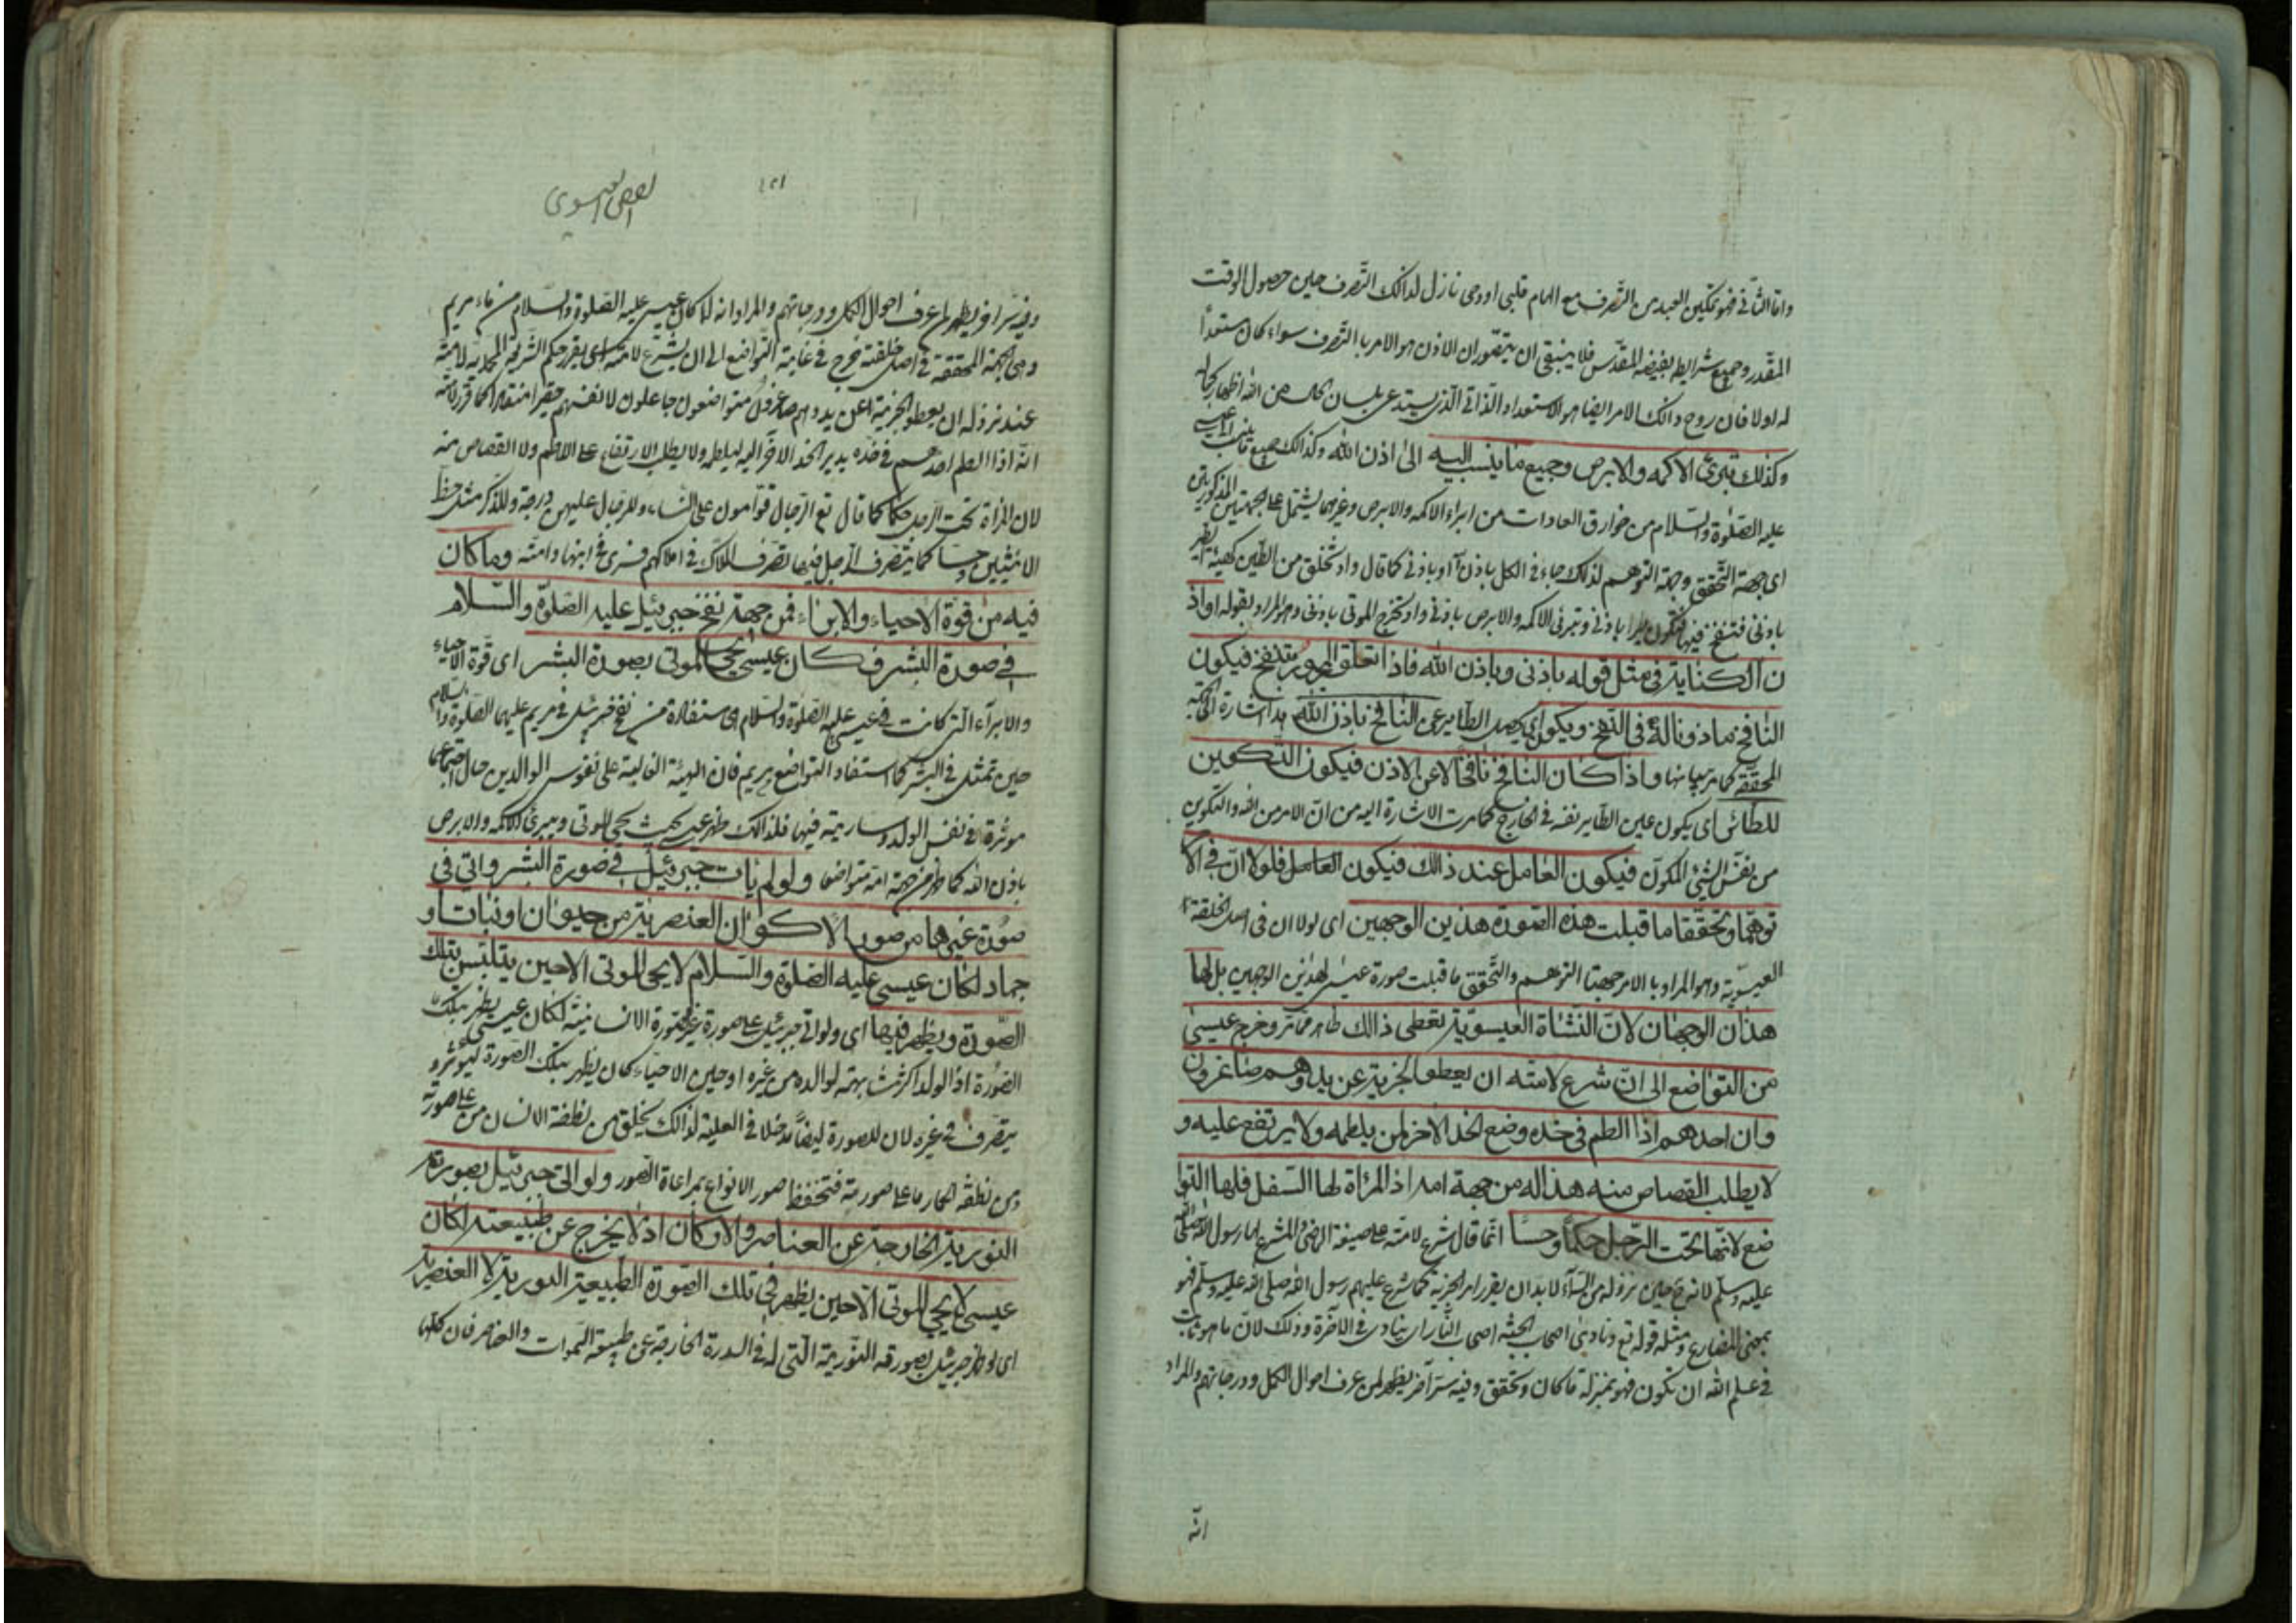 واما الثانی فهو تمکین العبد من التصرف مع الهام قلبی او وحی نازل لذالک التصرف حین حصول الوقت
المقدر وجمیع شرایطه بفیضه المقدس فلا ینبغی ان یتصور ان الاذن هو الامر بالتصرف سواء کان مستعداً
له اولا فان روح ذالک الامر ایضا هو الاستعداد الذاتی الذی یستدعی بلسان حاله من الله اظهار کماله
وکذلک تبرئ الاکمه والابرص وجمیع ما ینسب الیه الی اذن الله وکذالک جمیع ما ینسب الی عیسی
علیه الصلوة والسلام من خوارق العادات من ابراء الاکمه والابرص وغیرهما یشتمل علی الجهتین المذکورتین
ای جهة التحقق وجهة التوهم لذلک جاء فی الکل باذن الله او باذنی کما قال واذ تخلق من الطین کهیئة الطیر
باذنی فتنفخ فیها فتکون طیرا باذنی وتبرئ الاکمه والابرص باذنی واذ تخرج الموتی باذنی وهو المراد بقوله او اذ
ن الکنایة فی مثل قوله باذنی وباذن الله فاذا تعلق المجرور بتنفخ فیکون
النافخ ماذونا له فی النفخ ویکون ای یحصل الطایر عن النافخ باذن الله هذا اشارة الی الجهة
المحققة کما مر بیانها واذا کان النافخ نافخا لا عن الاذن فیکون التکوین
للطائر ای یکون عین الطایر نفسه فی الخارج کما مرت الاشارة الیه من ان الامر من الله والتکوین
من نفس الشئ المکون فیکون العامل عند ذالک فیکون العامل فلولا ان فی الا
توهما وتحققا ما قبلت هذه الصورة هذین الوجهین ای لولا ان فی اصل الخلقة
العیسویة وهو المراد بالامر جهتا التوهم والتحقق ما قبلت صورة عیسی لهذین الوجهین بل لها
هذان الوجهان لان النشاة العیسویة تعطی ذالک ظاهر مما مر وخرج عیسی
من التواضع الی ان شرع لامته ان یعطوا الجزیة عن ید وهم صاغرون
وان احدهم اذا الطم فی خده وضع الخد الاخر لمن یلطمه ولا یرتفع علیه و
لا یطلب القصاص منه هذا له من جهة امه اذ المرأة لها السفل فلها التوا
ضع لانها تحت الرجل حکماً وحساً انما قال شرع لامته علی صیغة الماضی والمشرع لها رسول الله صلی الله
علیه وسلم لانه حین نزوله من السماء لا بد ان یقرر امر الجزیة کما شرع علیهم رسول الله صلی الله علیه وسلم فهو
بمعنی المضارع ومثله قوله تع ونادی اصحاب الجنة اصحاب النار ای ینادی فی الآخرة وذلک لان ما هو ثابت
فی علم الله ان یکون فهو بمنزلة ما کان وتحقق وفیه سر آخر یظهر لمن عرف احوال الکمل ودرجاتهم والمراد
انه
الفص العیسوی
وفیه سر اخر یظهر لمن عرف احوال الکمل ودرجاتهم والمراد انه لما کان عیسی علیه الصلوة والسلام من ماء مریم
وهی الجهة المحققة فی اصل خلقته خرج فی غایة التواضع الی ان یشرع لامته ای یقرر حکم الشریعة المحمدیة لامته
عند نزوله ان یعطوا الجزیة عن ید وهم صاغرون متواضعون جاعلون لانفسهم حقیرا منقادا کما قرر لامته
انه اذا لطم احدهم فی خده یدیر الخد الاخر الیه لیلطمه ولا یطلب الارتفاع علی اللاطم ولا القصاص منه
لان المراة تحت الرجل حکما کما قال تع الرجال قوامون علی النساء وللرجال علیهن درجة وللذکر مثل حظ
الانثیین وحسا کما یتصرف الرجل فیها تصرف الملاک فی املاکهم فسری فی ابنها وامته وما کان
فیه من قوة الاحیاء والابراء فمن جهة نفخ جبرئیل علیه الصلوة والسلام
فی صورة البشر فکان عیسی یحیی الموتی بصورة البشر ای قوة الاحیاء
والابراء التی کانت فی عیسی علیه الصلوة والسلام هی مستفادة من نفخ جبرئیل فی مریم علیهما الصلوة والسلام
حین تمثل فی البشر کما استفاد التواضع من مریم فان الهیئة الغالبة علی نفوس الوالدین حال اجتماعهما
موثرة فی نفس الولد وساریة فیها فلذالک ظهر عیسی بحیث یحیی الموتی ویبرئ الاکمه والابرص
باذن الله کما ظهر من جهة امه متواضعا ولو لم یات جبرئیل فی صورة البشر واتی فی
صورة غیرها من صور الاکوان العنصریة من حیوان او نبات او
جماد لکان عیسی علیه الصلوة والسلام لا یحیی الموتی الا حین یتلبس بتلک
الصورة ویظهر فیها ای ولو اتی جبرئیل علی صورة غیر الصورة الانسانیة لکان عیسی یظهر بتلک
الصورة اذ الولد اکثر شبهته لوالده من غیره او حین الاحیاء کان یظهر بتلک الصورة لیؤثر و
یتصرف فی غیره لان للصورة ایضاً مدخلا فی العلیة لذالک یخلق من نطفة الانسان من علی صورته
ومن نطفة الحمار ما علی صورته فتحفظ صور الانواع بمراعاة الصور ولو اتی جبرئیل بصورته
النوریة الخارجة عن العناصر والارکان اذ لا یخرج عن طبیعته لکان
عیسی لا یحیی الموتی الا حین یظهر فی تلک الصورة الطبیعیة النوریة لا العنصریة
ای لو ظهر جبرئیل بصورته النوریة التی له فی السدرة الخارجة عن طبیعة السموات والعناصر فان کلها